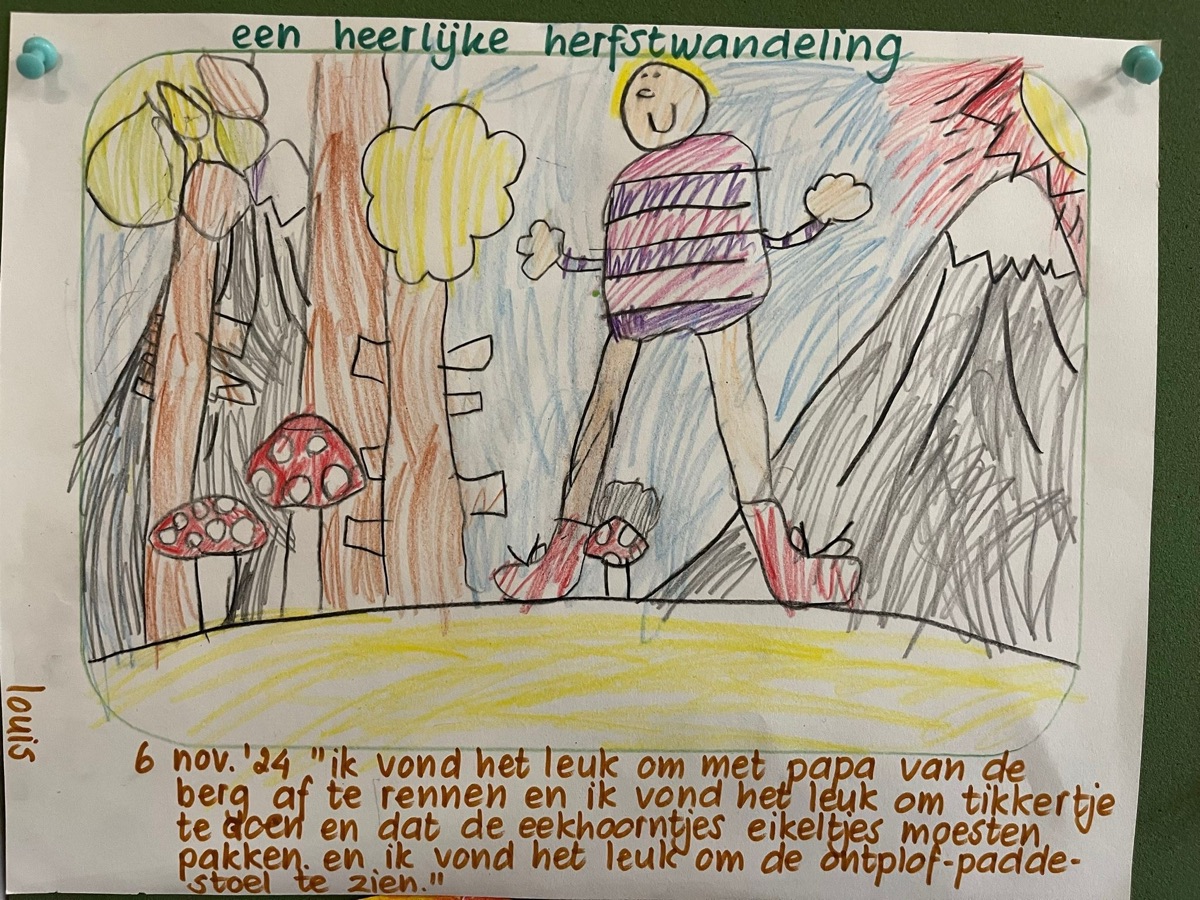 een heerlijke herfstwandeling
louis
6 nov. '24 "ik vond het leuk om met papa van de
berg af te rennen en ik vond het leuk om tikkertje
te doen en dat de eekhoorntjes eikeltjes moesten
pakken. en ik vond het leuk om de ontplof-padde-
stoel te zien."